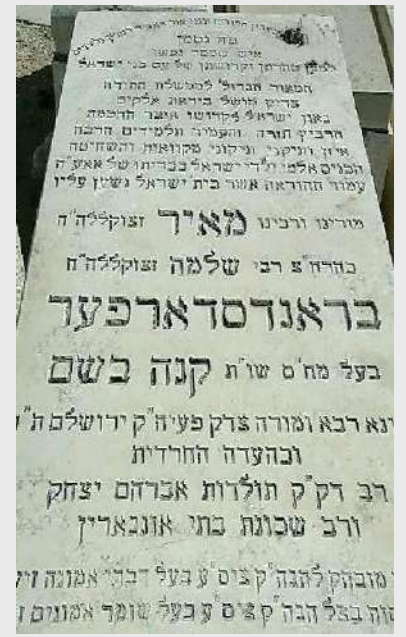 פה נטמן
איש
טהרתן וקדושתן של עם בני ישראל
המאור הגדול לממשלת התורה
צדיק מושל ביראת אלקים
גאון ישראל וקדושו אוצר החכמה
הרביץ תורה והעמיד תלמידים הרבה
איזן ותיקני תיקוני מקוואות והשחיטה
הכניס אלפי ילדי ישראל בבריתו של אאע״ה
עמוד ההוראה אשר בית ישראל נשען עליו
מורינו ורבינו מאיר זצוקללה״ה
בהרה״צ רבי שלמה זצוקללה״ה
בראנדסדארפער
בעל מח״ס שו״ת קנה בשם
ינא רבא ומורה צדק פעיה״ק ירושלם ת״ו
ובהעדה החרדית
רב דק״ק תולדות אברהם יצחק
ורב שכונת בתי אונגארין
מובהק להגה״ק ציס״ע בעל דברי אמונה
בצל הגה״ק ציס״ע בעל שומר אמונים